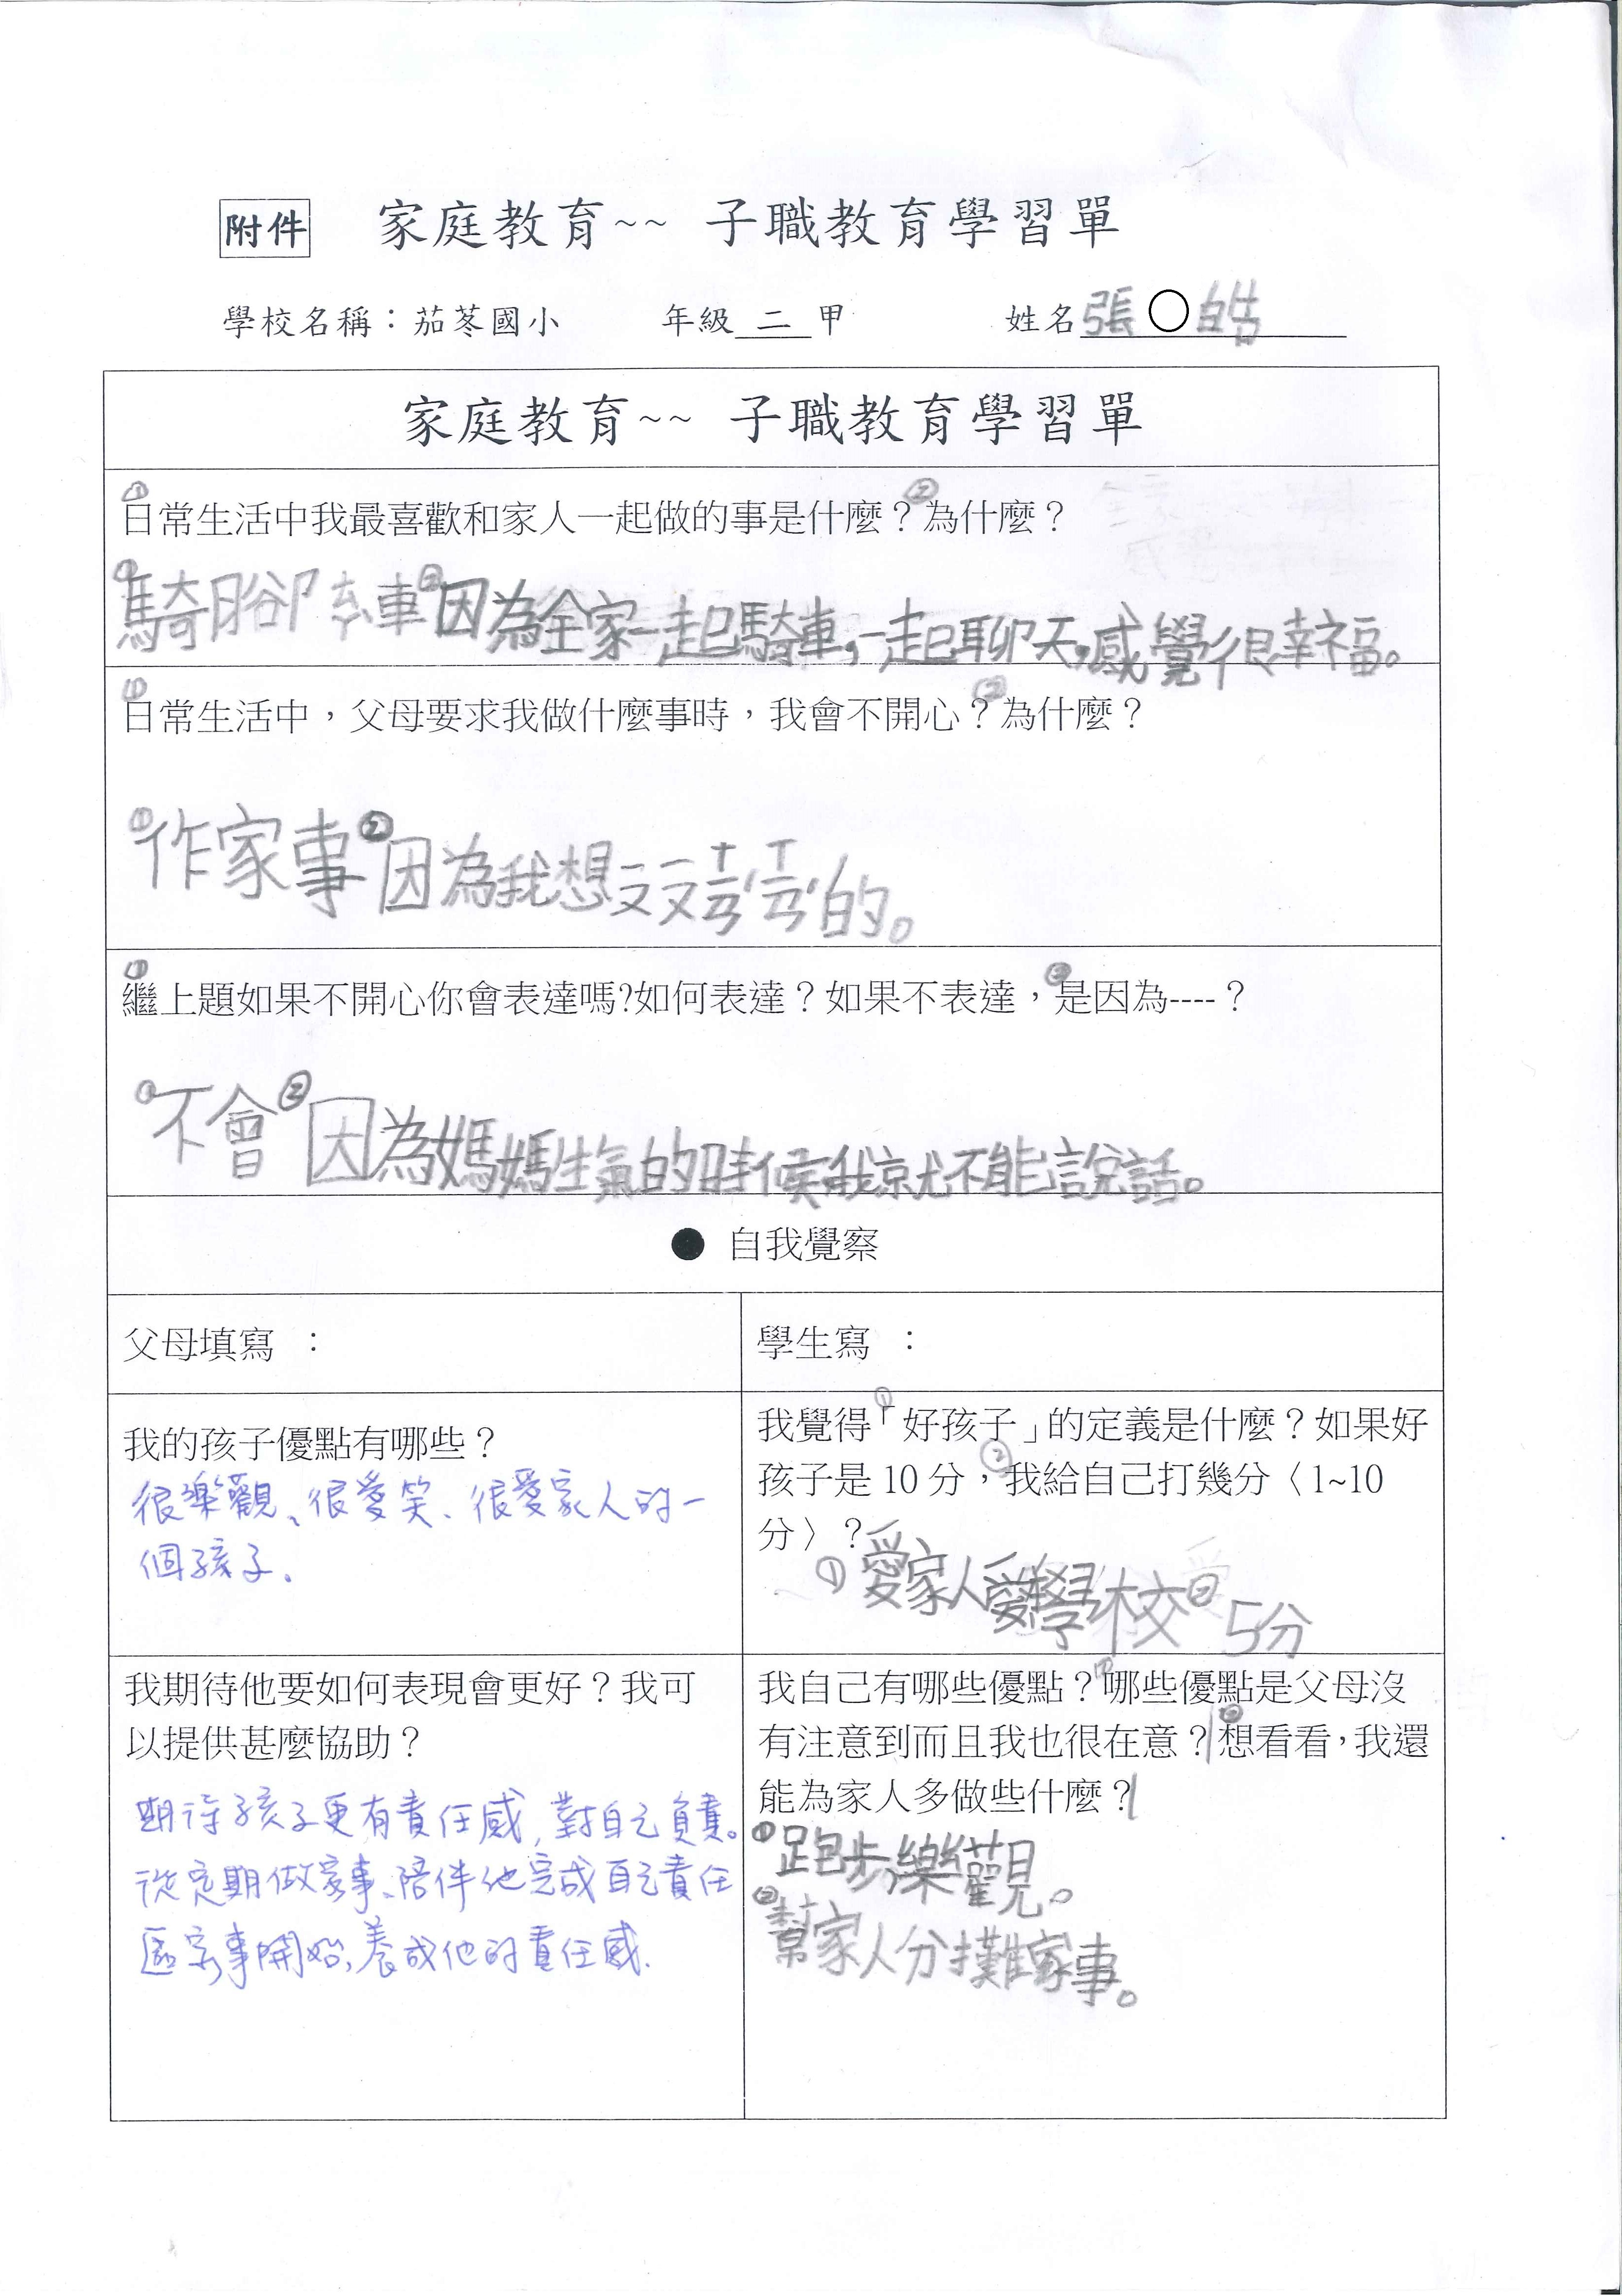 附件 家庭教育~~ 子職教育學習單
學校名稱：茄苳國小 年級 二 甲 姓名 張○皓
家庭教育~~ 子職教育學習單
①日常生活中我最喜歡和家人一起做的事是什麼？②為什麼？
①騎腳車②因為全家一起騎車,一起聊天,感覺很幸福。
①日常生活中，父母要求我做什麼事時，我會不開心？②為什麼？
①作家事②因為我想ㄧㄡㄧㄡㄒㄧㄢˊㄒㄧㄢˊ的。
①繼上題如果不開心你會表達嗎?如何表達？如果不表達，②是因為----？
①不會②因為媽媽生氣的時候我就不能說話。
● 自我覺察
父母填寫 ：
學生寫 ：
我的孩子優點有哪些？
很樂觀、很愛笑、很愛家人的一
個孩子.
①我覺得「好孩子」的定義是什麼？如果好
孩子是 10 分，②我給自己打幾分〈 1~10
分〉？
①愛家人愛學校②5分
我期待他要如何表現會更好？我可
以提供甚麼協助？
期待孩子更有責任感,對自己負責。
從定期做家事、陪伴他完成自己責任
區家事開始,養成他的責任感.
我自己有哪些優點？①哪些優點是父母沒
有注意到而且我也很在意？②想看看，我還
能為家人多做些什麼？
①跑步,樂觀。
②幫家人分攤家事。